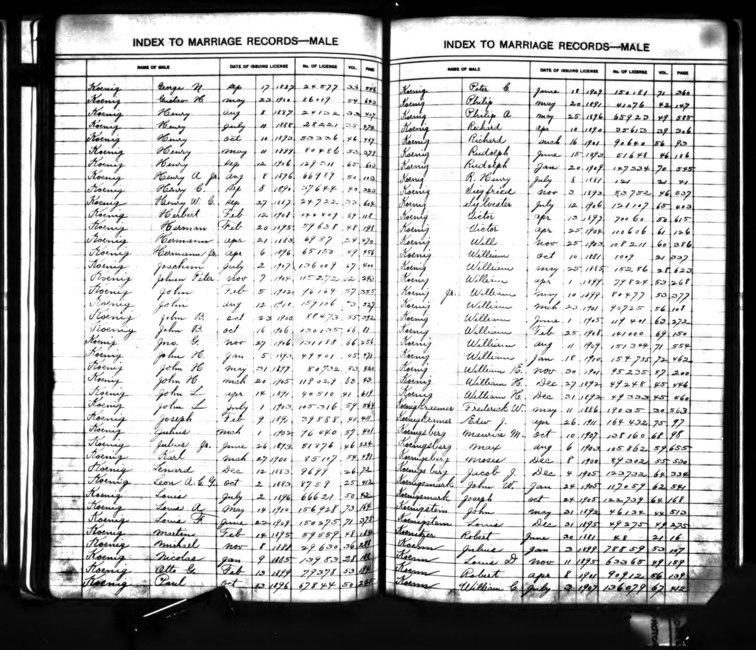 INDEX TO MARRIAGE RECORDS—MALE
NAME OF MALE DATE OF ISSUING LICENSE No. OF LICENSE VOL. PAGE
Koenig George N. Sep 17 1887 24577 33
Koenig Gustav H May 23 1910 54
Koenig Henry Aug 8 1887 24132 33
Koenig Henry July 11 1888 28221 35
Koenig Henry Oct 10 1893 53336 46
Koenig Henry May 11 1899 80486 53
Koenig Henry Sep 12 1906 65
Koenig Henry A Jr. Aug 8 1896 66989 50
Koenig Henry C. Sep 8 1890 37644 40
Koenig Henry W. C. Sep 27 1887 24722 33
Koenig Herbert Feb 12 1908 69 118
Koenig Herman Feb 20 1895 59638 48 198
Koenig Hermann Apr 21 1883 6987 24 470
Koenig Hermann Jr. Apr 6 1896 65150 49
Koenig Joachim July 2 1907 136009 67
Koenig Johann Peter Nov 7 1904 115272 62
Koenig John Feb 5 1902 96164 57
Koenig John Aug 12 1910 159106 73
Koenig John B Oct 23 1900 88473 55
Koenig John B. Oct 1906 130135 66
Koenig Jno. G. Nov 27 1906 131188 66
Koenig John H. Jan 5 1893 49401 45
Koenig John H May 31 1899 80732 53
Koenig John H Mch 20 1905 118029 63
Koenig John L Apr 14 1891 40510 41 618
Koenig John L July 1 1903 105316 59
Koenig Joseph Feb 9 1891 39888 41
Koenig Julius Mch 1 1902 96640 57
Koenig Julius Jr. June 26 1893 51876 46
Koenig Karl Mch 27 1900 85107 54
Koenig Lenard Dec 12 1883 9699 26 72
Koenig Leon A E G Oct 2 1883 8759 25
Koenig Louis July 2 1896 66621 50
Koenig Louis A May 14 1910 156928 73
Koenig Louis F. June 22 1909 150275 71
Koenig Feb 14 1895 59559 48
Koenig Michael Nov 8 1888 29630 36
Koenig Nicolas Jan 9 1885 13953 28
Koenig Otto G. Feb 13 1899 79378 53
Koenig Paul Oct 13 1896 67844 50
INDEX TO MARRIAGE RECORDS—MALE
NAME OF MALE DATE OF ISSUING LICENSE No. OF LICENSE VOL. PAGE
Koenig Peter C. June 18 1909 150181 71 360
Koenig Philip May 20 1891 41076 42 147
Koenig Philip A May 25 1896 65923 49 585
Koenig Richard Apr 10 1890 35613 39 306
Koenig Richard Mch 16 1901 90640 56 93
Koenig Rudolph June 15 1893 51648 46 186
Koenig Rudolph Jan 20 1909 147334 70 545
Koenig R. Henry July 1881 121 21 41
Koenig Siegfried Nov 3 1893 53752 46 537
Koenig Sylvester July 12 1906 128107 65 403
Koenig Victor Apr 13 1897 70060 50 615
Koenig Victor Apr 25 1904 110606 61 126
Koenig Will Nov 25 1903 108211 60 386
Koenig William Oct 10 1881 1009 21 337
Koenig William May 25 1885 15286 28 623
Koenig William Apr 1 1899 77824 53 268
Koenig Jr. William May 10 1899 80477 53 377
Koenig William Mch 23 1901 90725 56 108
Koenig William June 1 1905 119401 63 272
Koenig William Feb 25 1908 141000 69 150
Koenig William Aug 11 1909 151344 71 554
Koenig William Jan 18 1910 154735 72 462
Koenig William E. Nov 30 1901 95235 57 200
Koenig William H. Dec 27 1892 49248 45 446
Koenig William H. Dec 31 1892 49333 45 460
Koenigkraemer Frederick W. May 11 1886 19035 30 563
Koenigkramer Edw J. Apr 26 1911 164432 75 97
Koenigsberg Maurice M. Oct 10 1907 138160 68 98
Koenigsberg Max Aug 6 1903 105862 59 655
Koenigsberg Moses Dec 8 1900 89302 55 530
Koenigsberg Jacob J. Dec 4 1905 123732 64 334
Koenigsmark John W. Jan 24 1905 117059 62 541
Koenigsmark Joseph Oct 24 1905 122739 64 168
Koenigstein John May 31 1892 46134 44 513
Koenigstein Louis Dec 31 1895 49275 49 275
Koenitzer Robert June 30 1881 48 21 16
Koenn Julius Jan 3 1899 78859 53 107
Koenn Louis D Nov 11 1895 63365 49 159
Koenn Robert Apr 8 1901 90912 56 139
Koenn William C. July 3 1907 136079 67 412